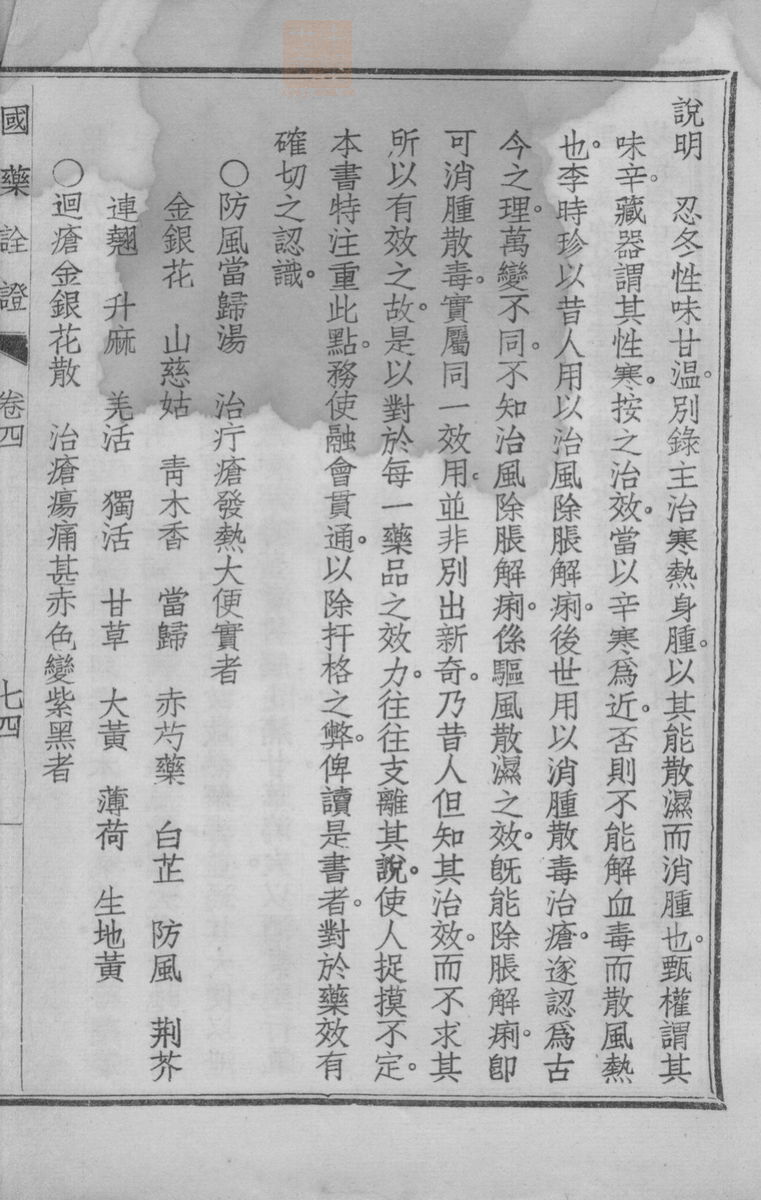 說明　忍冬性味甘温。別錄主治寒熱身腫。以其能散濕而消腫也。甄權謂其
味辛。藏器謂其性寒。按之治效。當以辛寒爲近。否則不能解血毒而散風熱
也。李時珍以昔人用以治風除脹解痢。後世用以消腫散毒治瘡。遂認爲古
今之理。萬變不同。不知治風除脹解痢。係驅風散濕之效。既能除脹解痢。卽
可消腫散毒。實屬同一效用。並非別出新奇。乃昔人但知其治效。而不求其
所以有效之故。是以對於每一藥品之效力。往往支離其說。使人捉摸不定。
本書特注重此點。務使融會貫通。以除扞格之弊。俾讀是書者。對於藥效有
確切之認識。
〇防風當歸湯　治疔瘡發熱大便實者
金銀花　山慈姑　靑木香　當歸　赤芍藥　白芷　防風　荆芥
連翹　升麻　羌活　獨活　甘草　大黃　薄荷　生地黃
〇迴瘡金銀花散　治瘡瘍痛甚赤色變紫黑者
國藥詮證　卷四　七四